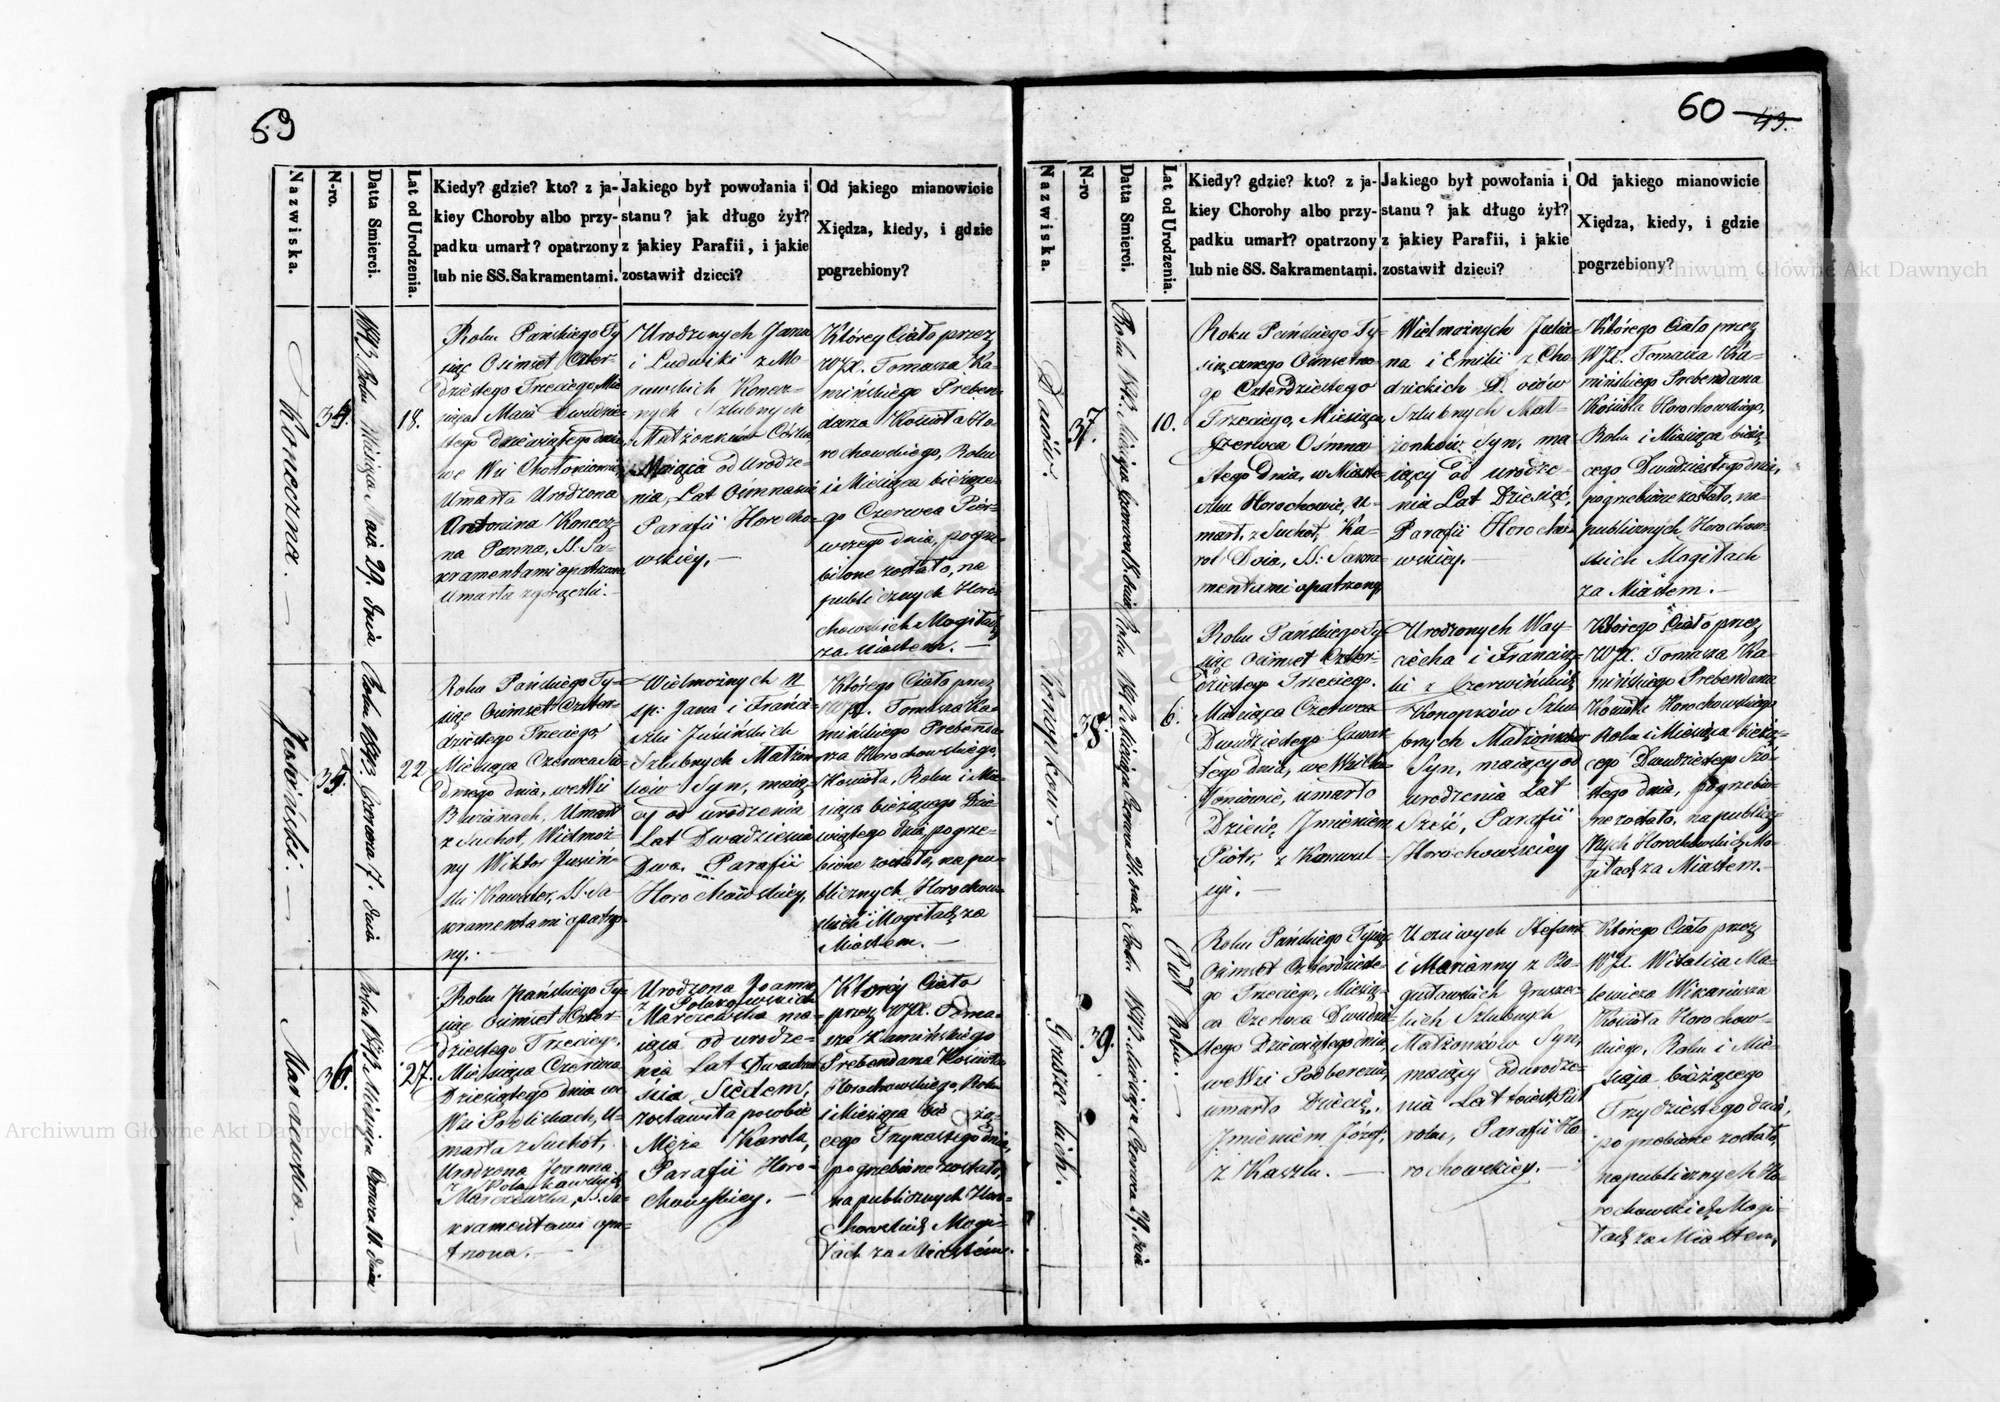 59
Nazwiska.
N-ro.
Datta Smierci.
Lat od Urodzenia.
Kiedy? gdzie? kto? z ja-
kiey Choroby albo przy-
padku umarł? opatrzony
lub nie SS. Sakramentami.
Jakiego był powołania i
stanu? jak długo żył?
z jakiey Parafii, i jakie
zostawił dzieci?
Od jakiego mianowicie
Xiędza, kiedy, i gdzie
pogrzebiony?
Koneczna.
34.
1843 Roku Miesiąca Maia 29. dnia
18.
Roku Pańskiego Ty-
siąc Osimset Czter-
dziestego Trzeciego Mie-
siąca Maia Dwudzie-
stego dziewiątego dnia
we Wsi
Umarła Urodzona
Antonina Konecz-
na Panna, SS. Sa-
kramentami opatrzona
Umarła z gorączki.
Urodzonych Jana
i Ludwiki z Mo-
rawskich Konecz-
nych Szlubnych
Małżonków Córka
Maiąca od Urodze-
nia, Lat Ośmnaście
Parafii Horocho-
wskiey.
Którey Ciało przez
WJX. Tomasza Ka-
mińskiego Preben-
darza Kościoła Ho-
rochowskiego, Roku
i Miesiąca bieżące-
go Czerwca Pier-
wszego dnia, pogrze-
bione zostało, na
publicznych Horo-
chowskich Mogiłach
za Miastem.
35.
Roku 1843. Czerwca 7. dnia
22
Roku Pańskiego Ty-
siąc Osimset Czter-
dziestego Trzeciego,
Miesiąca Czerwca Sió-
dmego dnia, we Wsi
Umarł
z Suchot, Wielmoż-
ny Wiktor Jusiń-
ski Kawaler, SS. Sa-
kramentami opatrzo-
ny.
Wielmożnych N
sp: Jana i Franci-
szki Jusińskich
Szlubnych Małżon-
ków Syn, maią-
cy od urodzenia
Lat Dwadzieścia
Dwa. Parafii
Horochowskiey.
Którego Ciało przez
WJX. Tomasza Ka-
mińskiego Prebenda-
rza Horochowskiego
Kościoła, Roku i Mie-
siąca bieżącego Dzie-
wiątego dnia pogrze-
bione zostało, na pu-
blicznych Horochow-
skich Mogiłach za
Miastem.
Marczewska.
36.
Roku 1843 Miesiąca Czerwca 10. dnia
27.
Roku Pańskiego Ty-
siąc Osimset Czter-
dziestego Trzeciego,
Miesiąca Czerwca
Dziesiątego dnia we
Wsi U-
marła z Suchot,
Urodzona Joanna
Marczewska, SS. Sa-
kramentami opa-
trzona.
Urodzona Joanna
Marczewska ma-
iąca od urodze-
nia Lat Dwadzie-
ścia Siedem,
zostawiła po sobie
Męża Karola,
Parafii Horo-
chowskiey.
Którey Ciało
przez WJX. Toma-
sza Kamińskiego
Prebendarza Kościoła
Horochowskiego, Roku
i Miesiąca bieżą-
cego Trzynastego dnia,
pogrzebione zostało,
na publicznych Horo-
chowskich Mogi-
łach za Miastem.
60
43.
Nazwiska.
N-ro
Datta Smierci.
Lat od Urodzenia.
Kiedy? gdzie? kto? z ja-
kiey Choroby albo przy-
padku umarł? opatrzony
lub nie SS. Sakramentami.
Jakiego był powołania i
stanu? jak długo żył?
z jakiey Parafii, i jakie
zostawił dzieci?
Od jakiego mianowicie
Xiędza, kiedy, i gdzie
pogrzebiony?
37.
Roku 1843. Miesiąca Czerwca 18. dnia
10.
Roku Pańskiego Ty-
siącznego Osimsetne-
go Czterdziestego
Trzeciego, Miesiąca
Czerwca Ośmna-
stego Dnia, w Miaste-
czku Horochowie, U-
marł, z Suchot, Ka-
rol SS. Sakra-
mentami opatrzony
Wielmożnych Julia-
na i Emilii z Cho-
dzickich
Szlubnych Mał-
żonków. Syn, ma-
iący od urodze-
nia Lat Dziesięć,
Parafii Horocho-
wskiey.
Którego Ciało przez
WJX. Tomasza Ka-
mińskiego Prebendarza
Kościoła Horochowskiego,
Roku i Miesiąca bieżą-
cego Dwudziestego dnia,
pogrzebione zostało, na
publicznych Horochow-
skich Mogiłach
za Miastem.
Konopków.
38.
Roku 1843. Miesiąca Czerwca 24. dnia
6.
Roku Pańskiego Ty-
siąc Osimset Czter-
dziestego Trzeciego.
Miesiąca Czerwca
Dwudziestego Czwar-
tego dnia, we Wsi
umarło
Dziecię Jmieniem
Piotr, z Konwul-
syi.
Urodzonych Woy-
ciecha i Francisz-
ki z Czerwińskich
Konopków Szlu-
bnych Małżonków
Syn, maiący od
urodzenia Lat
Sześć, Parafii
Horochowskiey
Którego Ciało przez
WJX. Tomasza Ka-
mińskiego Prebendarza
Kościoła Horochowskiego
Roku i Miesiąca bieżą-
cego Dwudziestego Szó-
stego dnia, pogrzebio-
ne zostało, na publicz-
nych Horochowskich Mo-
giłach za Miastem.
Gruszeckich.
39.
Roku 1843. Miesiąca Czerwca 29. dnia
Puł Roku.
Roku Pańskiego Tysiąc
Osimset Czterdzieste-
go Trzeciego, Miesią-
ca Czerwca Dwudzie-
stego Dziewiątego dnia,
we Wsi Podbereziu,
umarło Dziecię,
Jmieniem Józef,
z Kaszlu.
Uczciwych Stefana
i Marianny z Bo-
gusławskich Gruszec-
kich Szlubnych
Małżonków Syn,
maiący od urodze-
nia Puł
roku, Parafii Ho-
rochowskiey.
Którego Ciało przez
WJX. Witalisa Ma-
lewicza Wikariusza
Kościoła Horochow-
skiego, Roku i Mie-
siąca bieżącego
Trzydziestego dnia,
pogrzebione zostało,
na publicznych Ho-
rochowskich Mogi-
łach za Miastem.
Archiwum Główne Akt Dawnych
Archiwum Główne Akt Dawnych